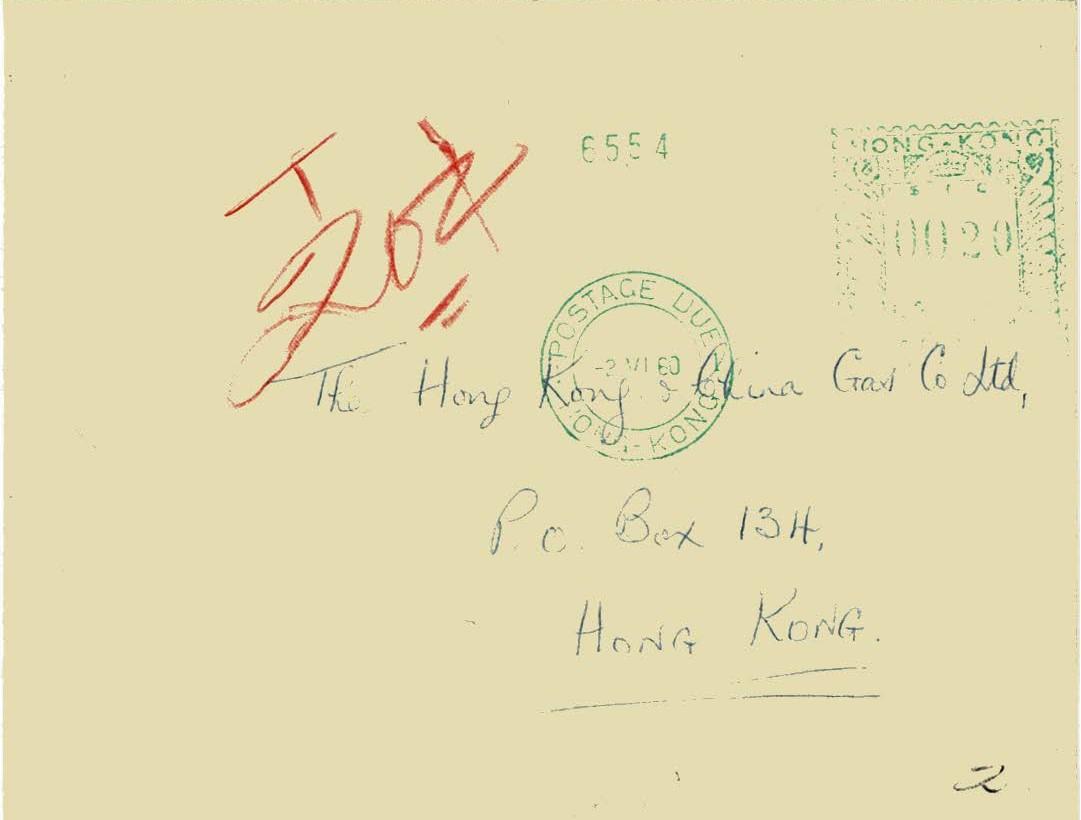 6554
HONG-KONG
$ C
0020
T
20¢
POSTAGE DUE
-2 VI 60
HONG-KONG
The Hong Kong & China Gas Co Ltd,
P.O. Box 134,
HONG KONG.
2